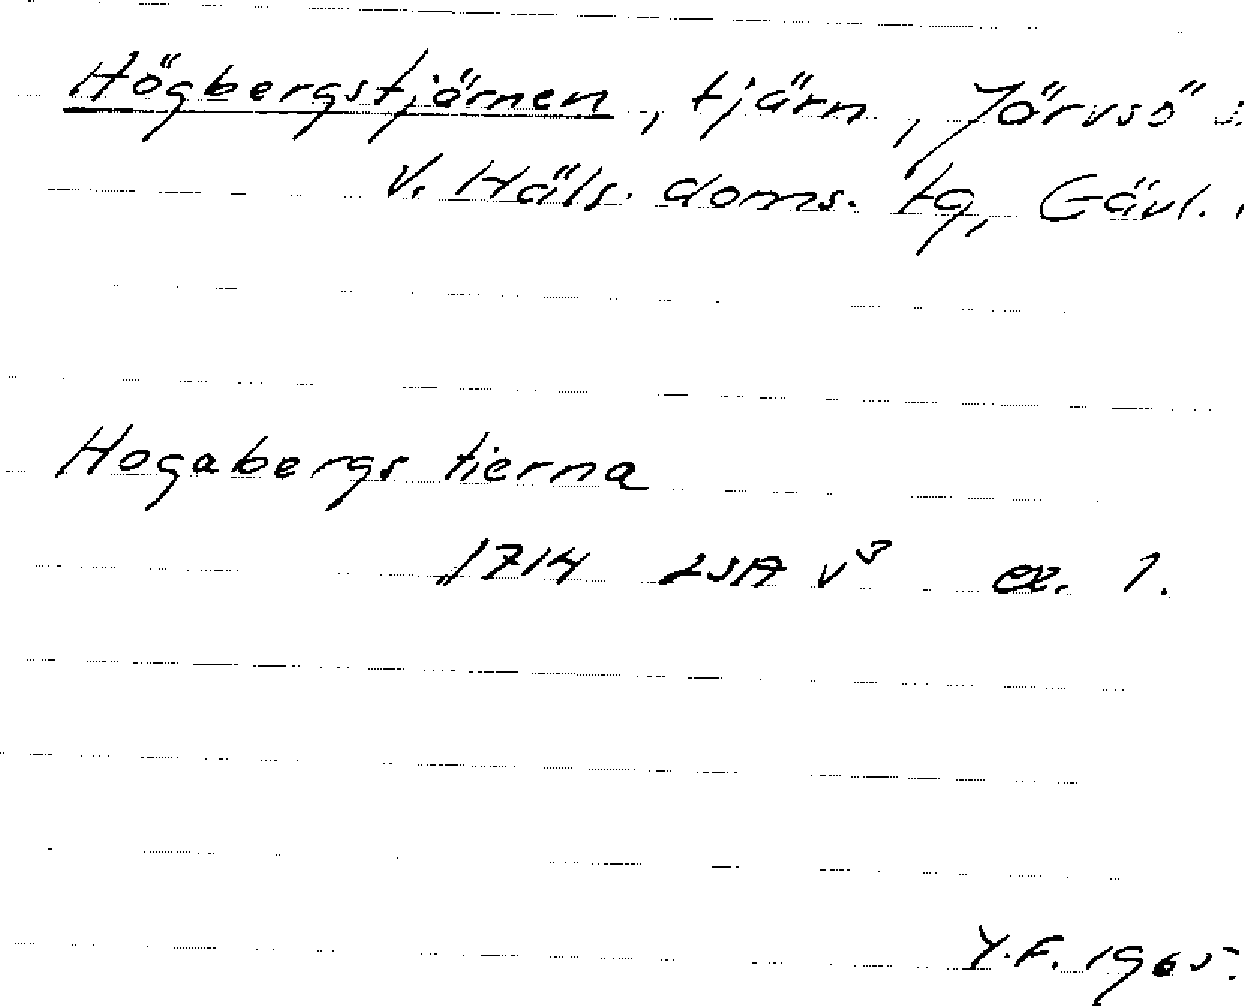 Högbergstjärnen, tjärn, Järvsö s:
V. Häls. doms. tg, Gävl.
Hogabergs tierna
1714 LSA v³ ex. 1.
Y.F. 1965.